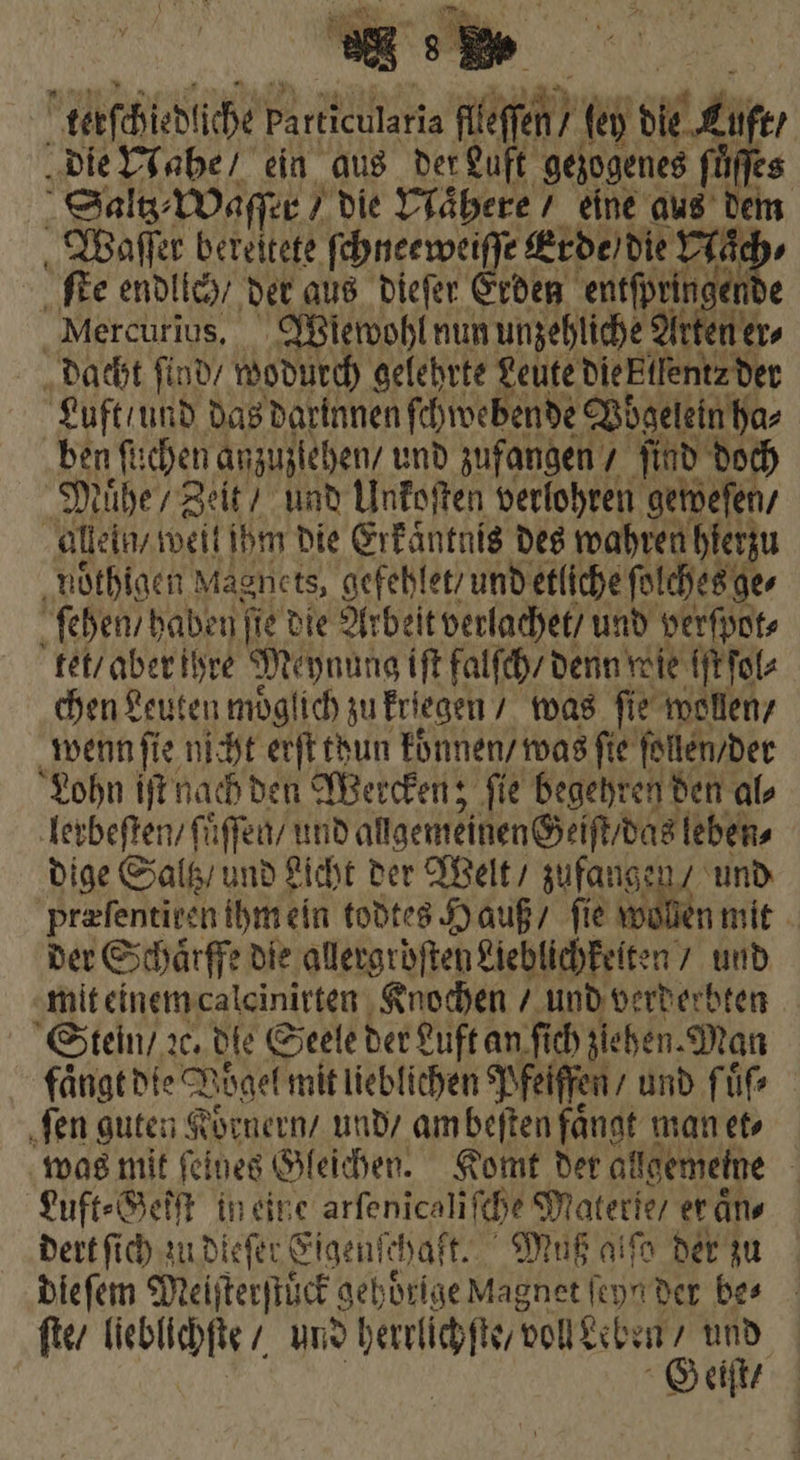 8
terſchiedliche Particularia flieſſen / ſey die Luft/
die Nahe / ein aus der Luft gezogenes ſuͤſſes
Saltz-Waſſer / die Naͤhere / eine aus dem
Waſſer bereitete ſchneeweiſſe Erde/die Naͤch-
ſte endlich/ der aus dieſer Erden entſpringende
Mercurius. Wiewohl nun unzehliche Arten er-
dacht ſind/ wodurch gelehrte Leute die Eſſentz der
Luft/und das darinnen ſchwebende Voͤgelein ha-
ben ſuchen anzuziehen/ und zufangen / ſind doch
Muͤhe / Zeit / und Unkoſten verlohren geweſen/
allein/ weil ihm die Erkaͤntnis des wahren hierzu
noͤthigen Magnets, gefehlet/ und etliche ſolches ge-
ſehen/ haben ſie die Arbeit verlachet/ und verſpot-
tet/ aber ihre Meynung iſt falſch/ denn wie iſt ſol-
chen Leuten moͤglich zu kriegen / was ſie wollen/
wenn ſie nicht erſt thun koͤnnen/ was ſie ſollen/der
Lohn iſt nach den Wercken; ſie begehren den al-
lerbeſten/ ſuͤſſen/ und allgemeinen Geiſt/das leben-
dige Saltz/ und Licht der Welt / zufangen / und
præſentiren ihm ein todtes Hauß / ſie wollen mit
der Schaͤrffe die allergroͤſten Lieblichkeiten / und
mit einem calcinirten Knochen / und verderbten
Stein/ ꝛc. die Seele der Luft an ſich ziehen. Man
faͤngt die Voͤgel mit lieblichen Pfeiffen / und ſuͤſ-
ſen guten Koͤrnern/ und/ am beſten faͤngt man et-
was mit ſeines Gleichen. Komt der allgemeine
Luft-Geiſt in eine arſenicaliſche Materie/ er aͤn-
dert ſich zu dieſer Eigenſchaft. Muß alſo der zu
dieſem Meiſterſtuͤck gehoͤrige Magnet ſeyn der be-
ſte/ lieblichſte / und herrlichſte/ voll Leben / und
Geiſt/